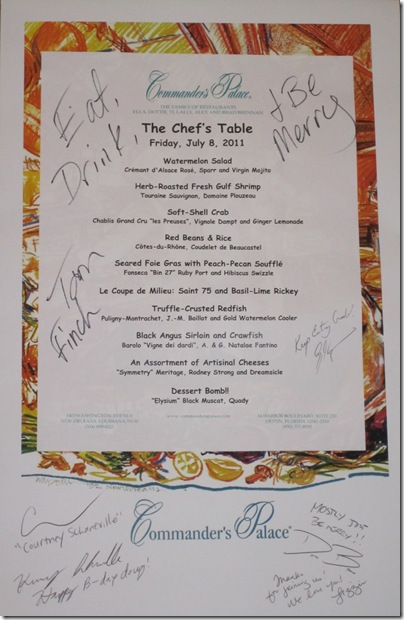 Eat,
Drink,
& Be
Merry
Commander's Palace®
THE FAMILY OF RESTAURANTS
ELLA, DOTTIE, TI, LALLY, ALEX AND BRAD BRENNAN
The Chef's Table
Friday, July 8, 2011
Watermelon Salad
Crémant d'Alsace Rosé, Sparr and Virgin Mojito
Herb-Roasted Fresh Gulf Shrimp
Touraine Sauvignon, Domaine Plouzeau
Soft-Shell Crab
Chablis Grand Cru "les Preuses", Vignole Dampt and Ginger Lemonade
Red Beans & Rice
Côtes-du-Rhône, Coudelet de Beaucastel
Seared Foie Gras with Peach-Pecan Soufflé
Fonseca "Bin 27" Ruby Port and Hibiscus Swizzle
Le Coupe de Milieu: Saint 75 and Basil-Lime Rickey
Truffle-Crusted Redfish
Puligny-Montrachet, J.-M. Boillot and Gold Watermelon Cooler
Black Angus Sirloin and Crawfish
Barolo "Vigne dei dardi", A. & G. Natalae Fantino
An Assortment of Artisinal Cheeses
"Symmetry" Meritage, Rodney Strong and Dreamsicle
Dessert Bomb!!
"Elysium" Black Muscat, Quady
Tom
Finch
Keep Eating Good!
1403 WASHINGTON AVENUE
NEW ORLEANS, LOUISIANA 70130
www.commanderspalace.com
DESTIN, FLORIDA
Commander's Palace®
"Courtney Schonville"
Happy B-day doug!
MOSTLY JOE
Thanks
for joining us!
We love you!